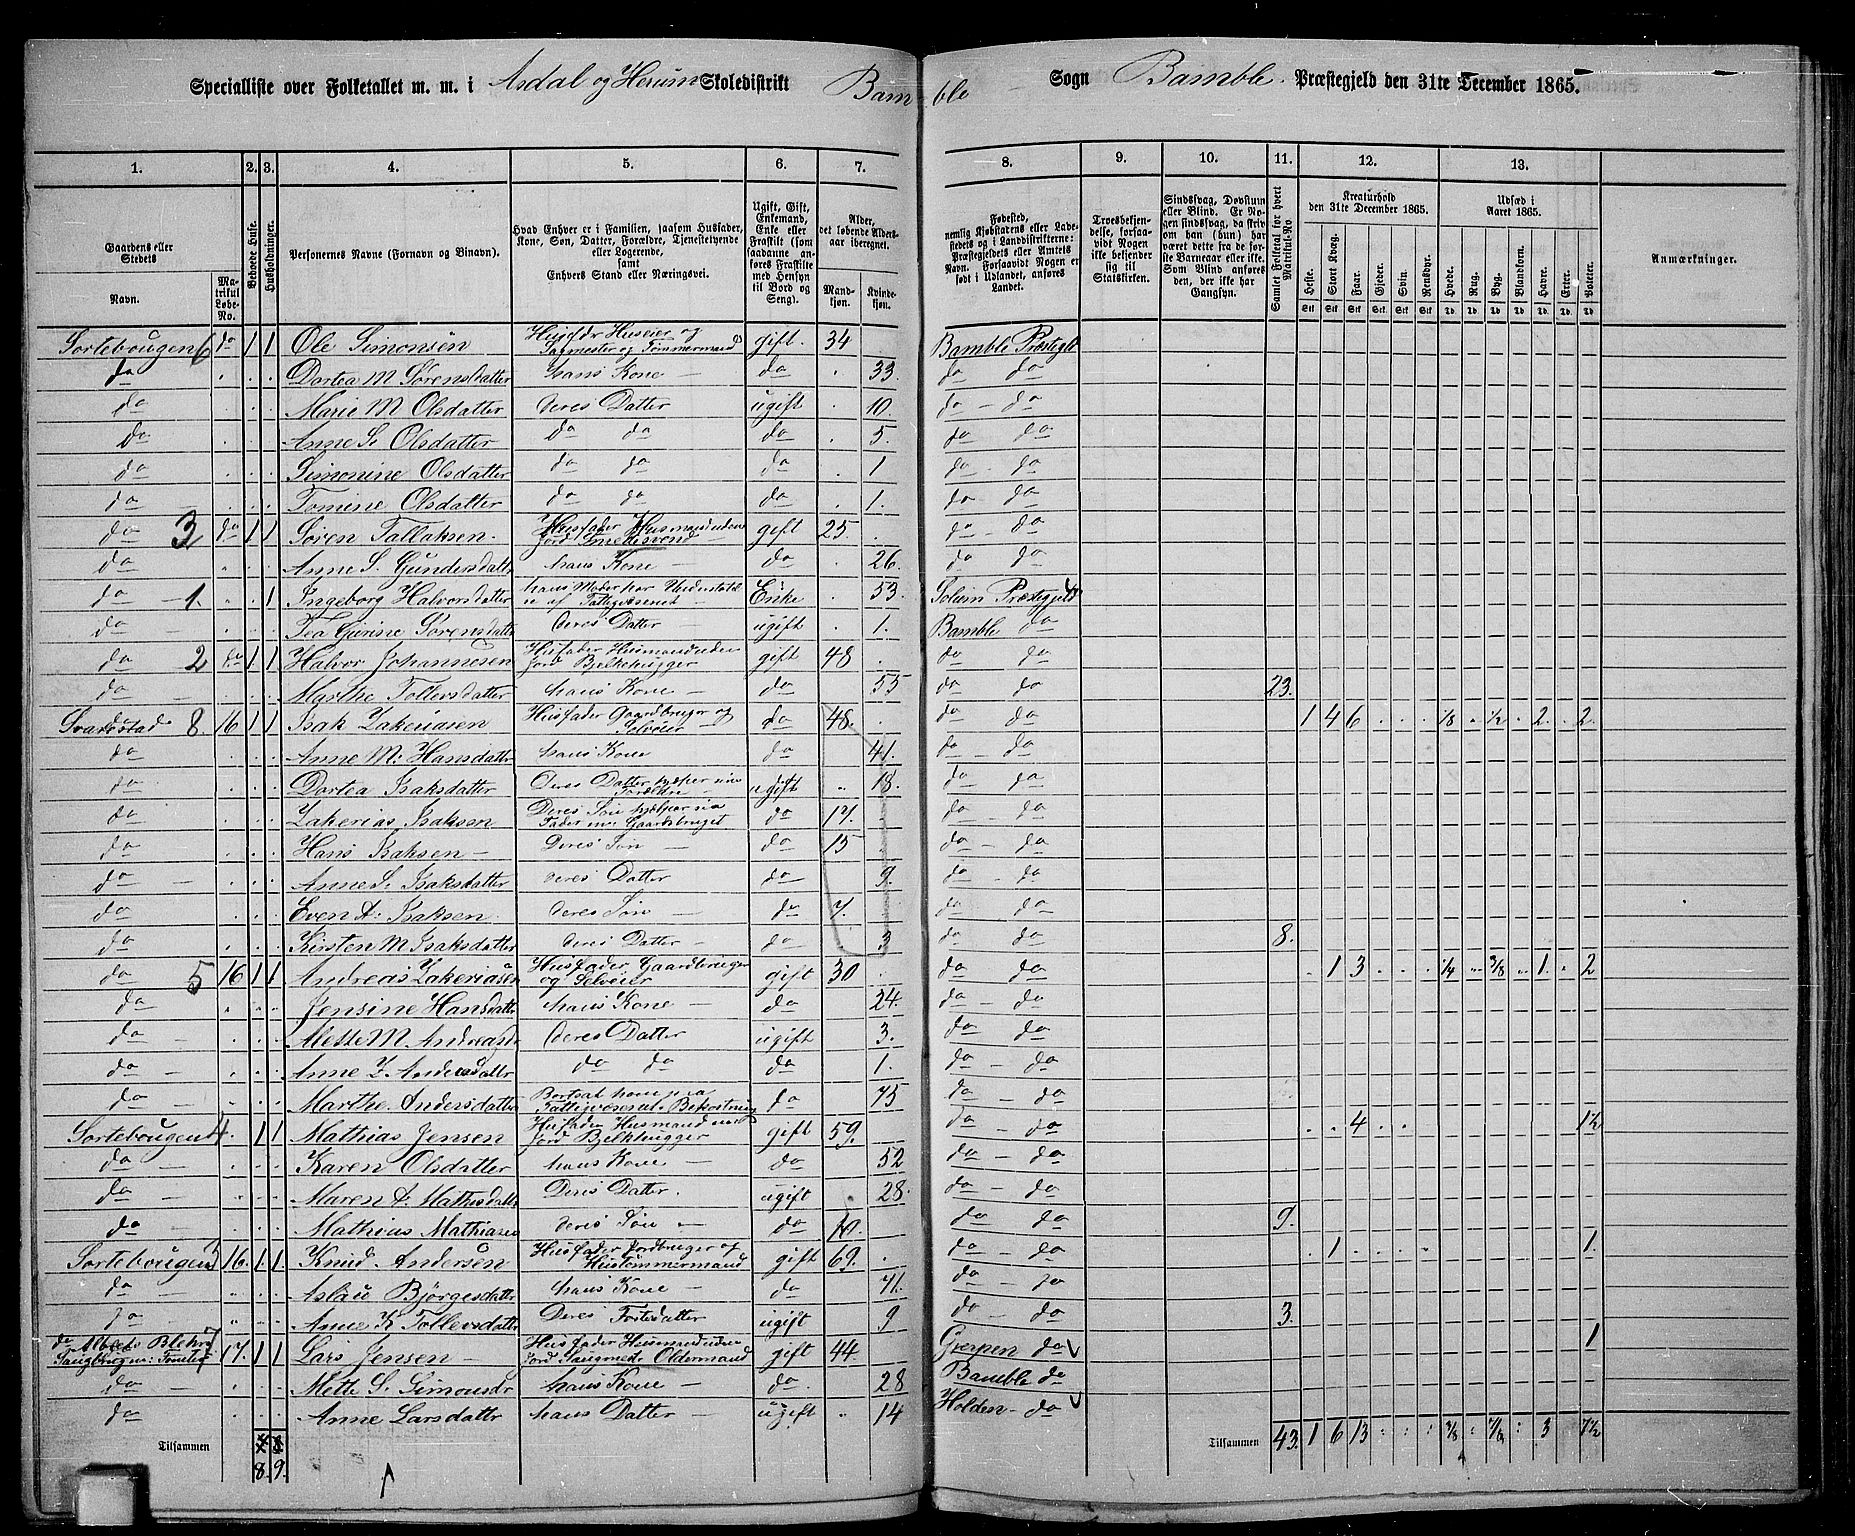 Specialliste over Folketallet m. m. i Asdal og Herum Skoledistrikt Bam ble Sogn Bamble Præstegjeld den 31te December 1865.
1. 2. 3. 4. 5. 6. 7. 8. 9. 10. 11. 12. 13.
Gaardens eller Stedets
Navn. Matrikul Løbe-No.
Beboede Huse.
Husholdninger.
Personernes Navne (Fornavn og Binavn).
Hvad Enhver er i Familien, saasom Husfader, Kone, Søn, Datter, Forældre, Tjenestetyende eller Logerende, samt Enhvers Stand eller Næringsvei.
Ugift, Gift, Enkemand, Enke eller Fraskilt (som saadanne anføres Fraskilte med Hensyn til Bord og Seng).
Alder, det løbende Aldersaar iberegnet.
Mandkjøn. Kvindekjøn.
Fødested, nemlig Kjøbstadens eller Ladestedets og i Landdistrikterne: Præstegjeldets eller Amtets Navn. Forsaavidt Nogen er født i Udlandet, anføres Landet.
Troesbekjendelse, forsaavidt Nogen ikke bekjender sig til Statskirken.
Sindssvag, Døvstum eller Blind. Er Nogen sindssvag, da skrives om han (hun) har været dette fra de første Barneaar eller ikke. Som Blind anføres den, der ikke har Gangsyn.
Samlet Folketal for hvert Matrikul-No
Kreaturhold den 31te December 1865.
Heste. Stort Kvæg. Faar. Gjeder. Svin. Rensdyr.
Udsæd i Aaret 1865.
Hvede. Rug. Byg. Blandkorn. Havre. Erter. Poteter.
Anmærkninger.
Sortebougen 6 do 1 1 Ole Simonsen Husfdr Huseier og Sagmester og Tømmermand gift. 34 Bamble Præstegld
do Dortea M Sørensdatter hans Kone do 33 do do
do Marie M Olsdatter deres Datter ugift 10. do do
do Anne S. Olsdatter do do do 5. do do
do Simonine Olsdatter do do do 1 do do
do Tomine Olsdatter do do do 1. do do
do 3 do 1 1 Søren Tallaksen. Husfader Husmand uden Jord Smedesvend gift 25 do do
do Anne S. Gundersdattr hans Kone do 26. do do
do 1. 1 Ingeborg Halvorsdatter hans Moder har Understøttelse af Fattigvæsenet Enke 53. Solum Præstegjeld
do Tea Gurine Sørensdattr deres Datter ugift 1. Bamble do
do 2 do 1 1 Halvor Johannesen Husfader Husmand uden Jord Bjelkehugger gift 48 do do
do Marthe Tollevsdatter hans Kone do 55 do do 23.
Svartstad 8. 16 1 1 Isak Zakeriasen Husfader Gaardbruger og Selveier do 48. do do 1 4 6 1/8 1/2 2 2
do Anne M. Hansdatter hans Kone do 41. do do
do Dortea Isaksdatter Deres Datter hjelper sine Forældre ugift 18. do do
do Zakerias Isaksen Deres Søn hjelper sin Fader med Gaardsbruget do 17. do do
do Hans Isaksen Deres Søn do 15 do do
do Anne S. Isaksdatter deres Datter do 9. do do
do Even A. Isaksen. deres Søn do 7. do do
do Kirsten M Isaksdatter deres Datter do 3 do do 8.
do 5 16 1 1 Andreas Zakeriasen Husfader Gaardbruger og Selveier gift 30 do do 1 3 1/4 3/8 1 2
do Jensine Hansdattr hans Kone do 24. do do
do Mette M. Andreasdr deres Datter ugift 3. do do
do Anne Z. Andersdattr do do do 1. do do
do Marthe Andersdatter Bortsat hans paa Fattigvæsenets Bekostning do 75 do do
Sortebougen 4. 1 1 Mathias Jensen Husfader Husmand med Jord Bjelkhugger gift 59. do do 4 1 1/2
do Karen Olsdatter hans Kone do 52 do do
do Maren A Mathisdattr Deres Datter. ugift 28. do do
do Mathias Mathiasen deres Søn do 10. do do 9.
Sortebougen 3 16. 1 1. Knud Andersen Husfader Jordbruger og Hustømmermand gift 69. do do 1 1.
do Aslau Bjørgesdatter hans Kone do 71. do do
do Anne K Tollevsdattr Deres Fostedatter ugift 9 do do 3.
17. 1 1 Lars Jensen Husfader Husmand uden Jord Saugmed. Oldermand gift 44. Gjerpen do 1
do Mette S. Simonsdr hans Kone do. 28 Bamble do
do Anne Larsdattr hans Datter ugift 14 Holden do
Tilsammen 8. 9. Tilsammen 43. 1 6 13 3/8 7/8 3 7 1/2